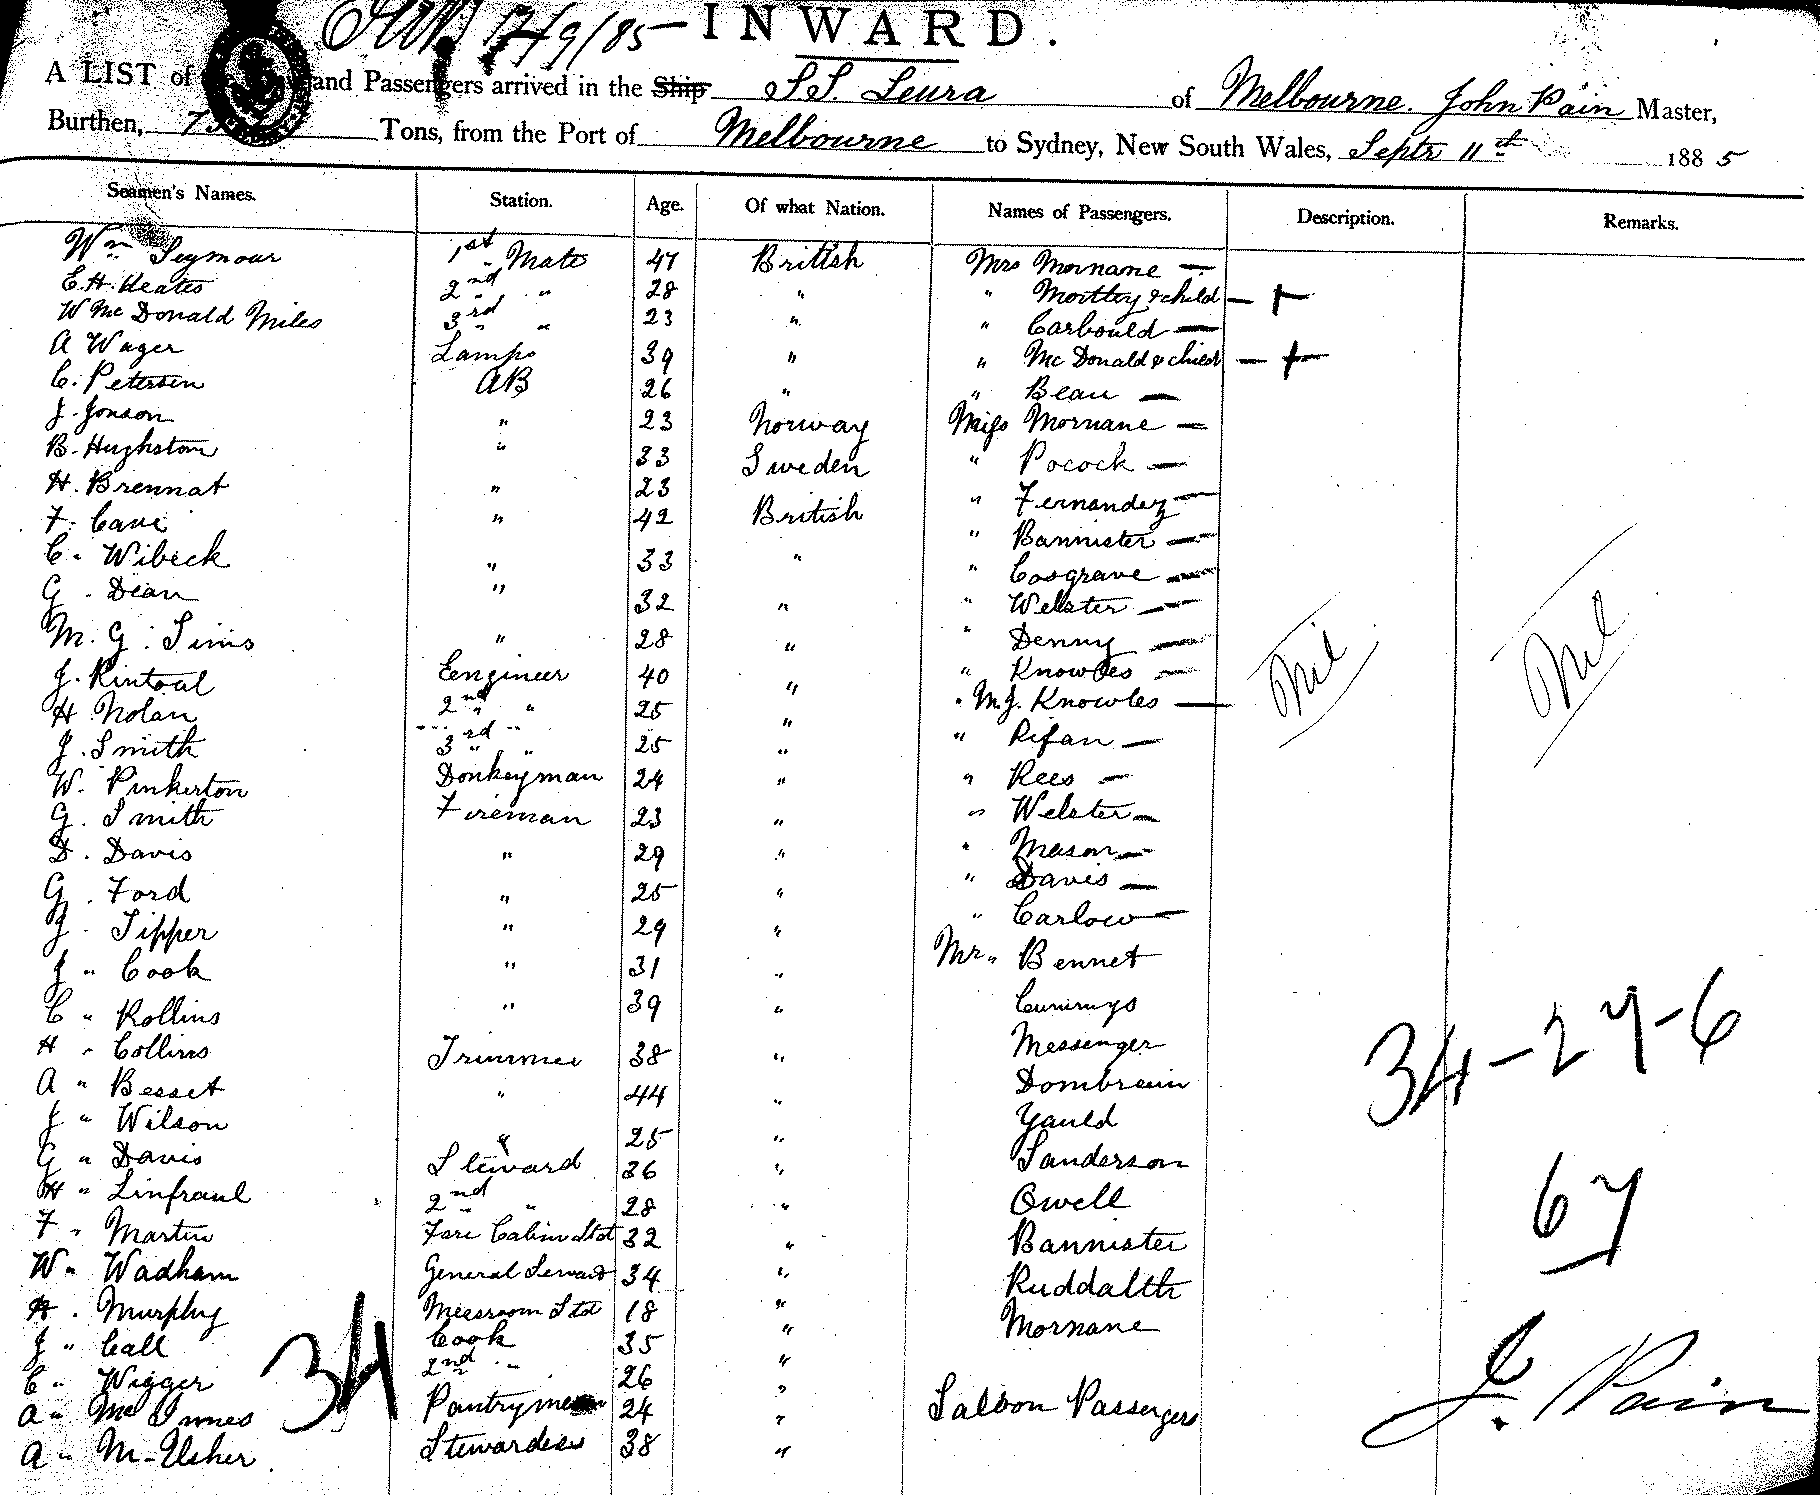 12/9/85
INWARD.
A LIST of and Passengers arrived in the Ship S.S. Leura of Melbourne. John Pain Master,
Burthen, Tons, from the Port of Melbourne to Sydney, New South Wales, Septr 11st 1885
Seamen's Names. Station. Age. Of what Nation. Names of Passengers. Description. Remarks.
Wm Seymour 1st Mate 47 British Mrs Mornane —
E.H. Keates 2nd " 28 " " Mortley & child — +
W McDonald Miles 3rd " 23 " " Carbould —
A Wager Lamps 39 " " McDonald & child — +
C. Petersen AB 26 " " Beau —
J. Jonson " 23 Norway Miss Mornane —
B. Hughston " 33 Sweden " Pocock —
H. Brennat " 23 " Fernandez —
F. Cave " 42 British " Bannister —
C. Wibeck " 33 " " Cosgrave —
G. Dean " 32 " " Webster —
M. G. Sims " 28 " " Denny —
J. Rintoal Eengineer 40 " " Knowles —
H. Nolan 2nd " 25 " " M.J. Knowles —
J. Smith 3rd " 25 " " Rifan —
W. Pinkerton Donkeyman 24 " " Rees —
G. Smith Fireman 23 " " Webster —
D. Davis " 29 " " Mason —
G. Ford " 25 " " Davis —
J. Tipper " 29 " " Carlow —
J. Cook " 31 " Mr. Bennet
C. Rollins " 39 " Cummys
H. Collins Trimmer 38 " Messenger
A. Besset " 44 " Dombrain
J. Wilson " 25 " Yauld
G. Davis Steward 36 " Sanderson
H. Linfraul 2nd " 28 " Owell
F. Martin Fore Cabin Std 32 " Bannister
W. Wadham General Servant 34 " Ruddalth
H. Murphy Messroom Std 18 " Mornane
J. Call Cook 35 "
C. Wigger 2nd " 26 "
A. McInnes Pantryman 24 " Saloon Passengers
A. M-Usher Stewardess 38 "
Nil Nil
34-27-6
67
34
J. Pain